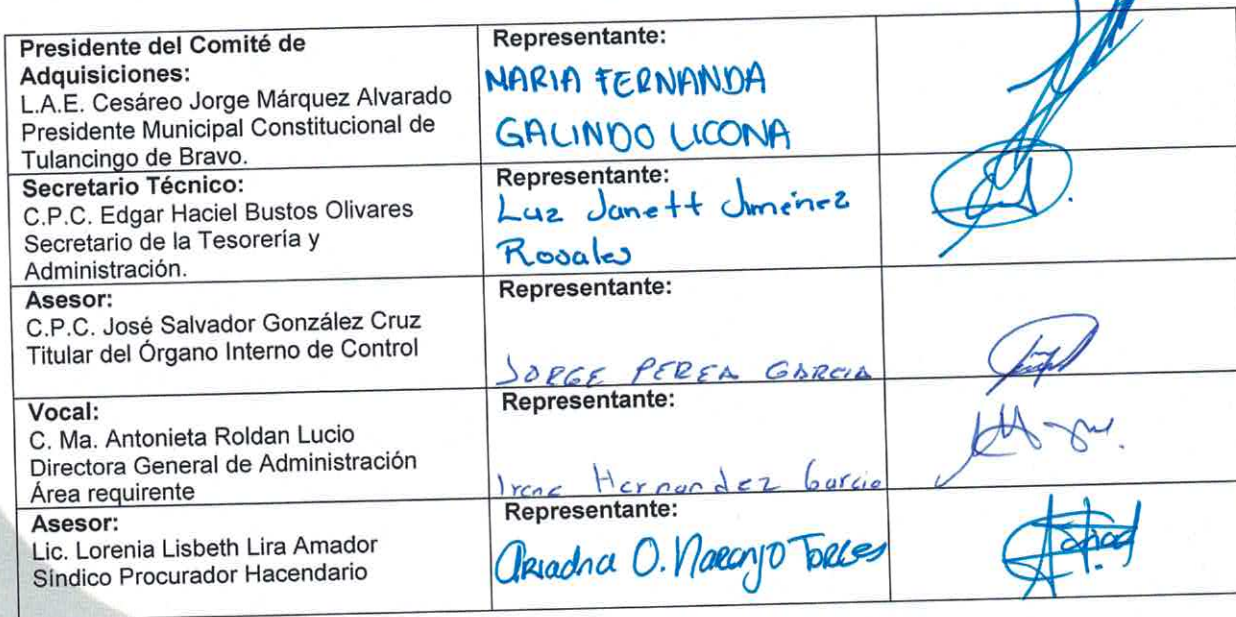 Presidente del Comité de
Adquisiciones:
L.A.E. Cesáreo Jorge Márquez Alvarado
Presidente Municipal Constitucional de
Tulancingo de Bravo.
Representante:
MARIA FERNANDA
GALINDO LICONA
Secretario Técnico:
C.P.C. Edgar Haciel Bustos Olivares
Secretario de la Tesorería y
Administración.
Representante:
Luz Janett Jiménez
Rosales
Asesor:
C.P.C. José Salvador González Cruz
Titular del Órgano Interno de Control
Representante:
JORGE PEREA GARCIA
Vocal:
C. Ma. Antonieta Roldan Lucio
Directora General de Administración
Área requirente
Representante:
Irene Hernandez Garcia
Asesor:
Lic. Lorenia Lisbeth Lira Amador
Síndico Procurador Hacendario
Representante:
Ariadna O. Naranjo Torres